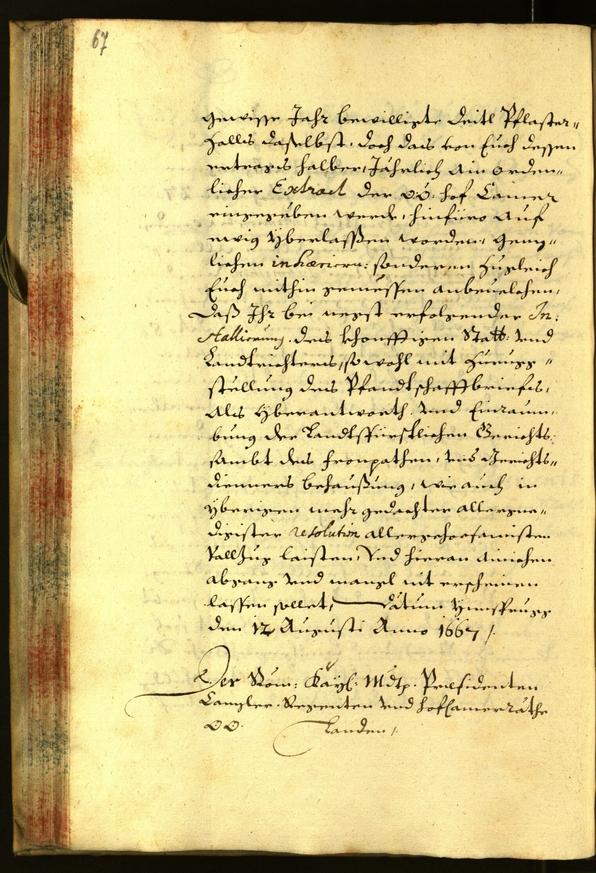 67
gewisse Jahr bewilligte deitl Pflaster=
Zolls daselbst, doch das von Euch dessen
ertrags halber, Jährlich ain orden=
licher Extract der OÖ: Hof Camer
eingegeben werde, hinfüro auf
ewig yberlassen worden, geng=
lichen inhæriern: sonderen zugleich
Euch mithin gemessen anbevelchen,
daß Ihr bei negst erfolgender In=
stallierung des khonfftigen Statt: und
Landtrichters, sowohl mit Zurugg=
stellung des Pfandtschafftbriefs,
als yberantworth: und Einraum=
bung der Landtsfürstlichen Gerichts:
sambt des fronpothen, und Gerichts=
dienners behaußung, wie auch in
yberigen mehr gedachter allergne=
digister resolution allergehorsamisten
Vollzug laisten, Und hieran ainichen
abgang und mangl nit erscheinen
lassen sollet, Datum Ynnsprugg
den 12 Augusti Anno 1667 /.
Der Röm: Kaÿl: Mdtp: Præsidenten
Canzler Regenten und hofCamerräthe
OÖ: Landen /.